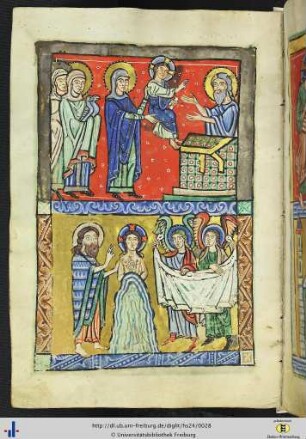 http://dl.ub.uni-freiburg.de/diglit/hs24/0028
© Universitätsbibliothek Freiburg